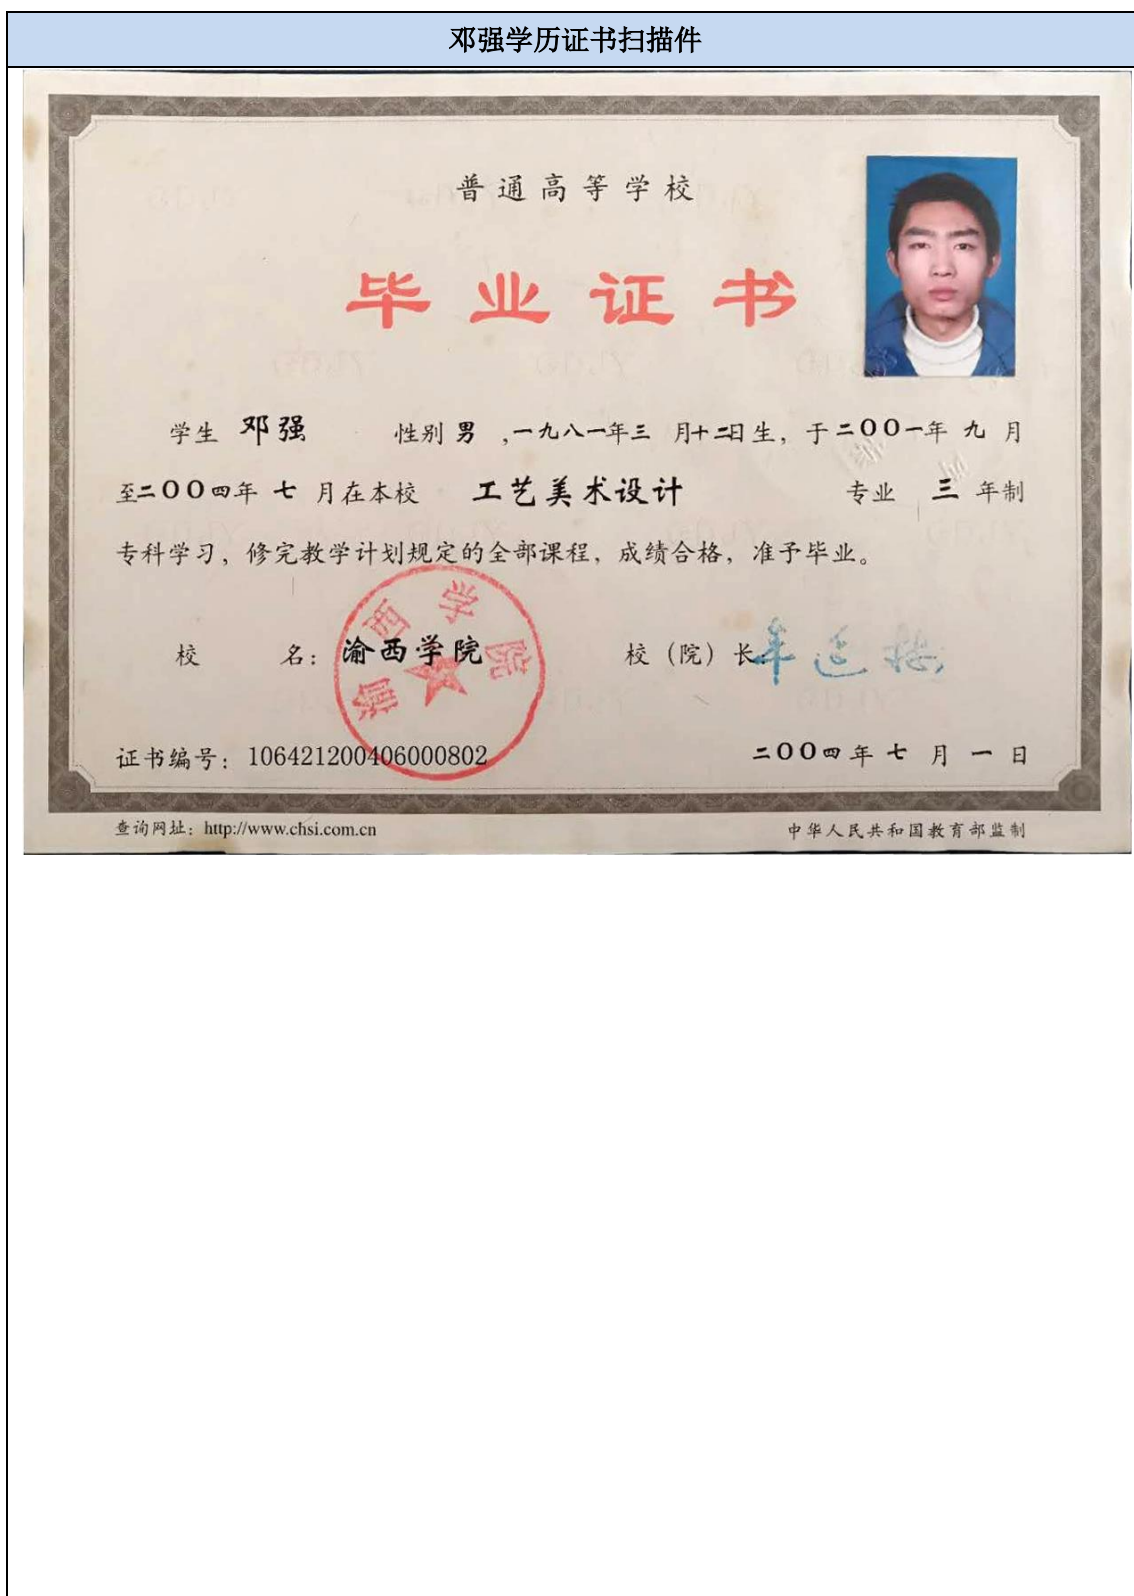 邓强学历证书扫描件
普通高等学校
毕业证书
学生 邓强 性别 男 ,一九八一年三 月十二日生，于二00一年 九 月
至二00四年 七 月在本校 工艺美术设计 专业 三 年制
专科学习，修完教学计划规定的全部课程，成绩合格，准予毕业。
校 名：渝西学院 校（院）长
渝西学院
证书编号：106421200406000802 二00四年 七 月 一 日
查询网址：http://www.chsi.com.cn 中华人民共和国教育部监制